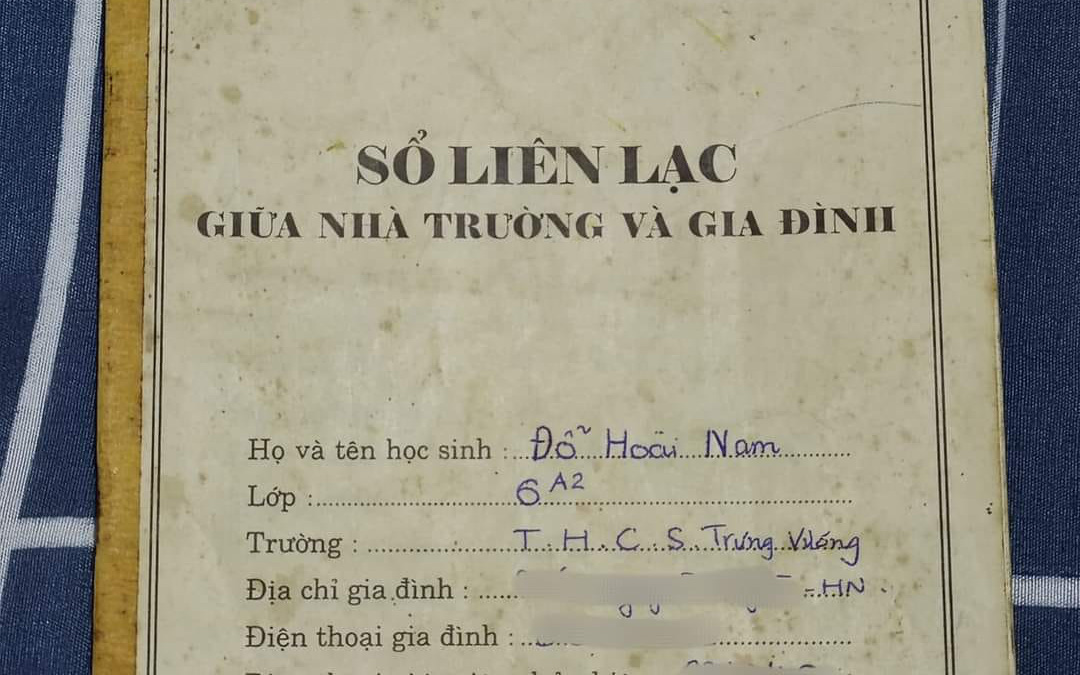 SỔ LIÊN LẠC
GIỮA NHÀ TRƯỜNG VÀ GIA ĐÌNH
Họ và tên học sinh : Đỗ Hoài Nam
Lớp : 6 A2
Trường : T.H.C.S Trưng Vương
Địa chỉ gia đình : HN
Điện thoại gia đình :